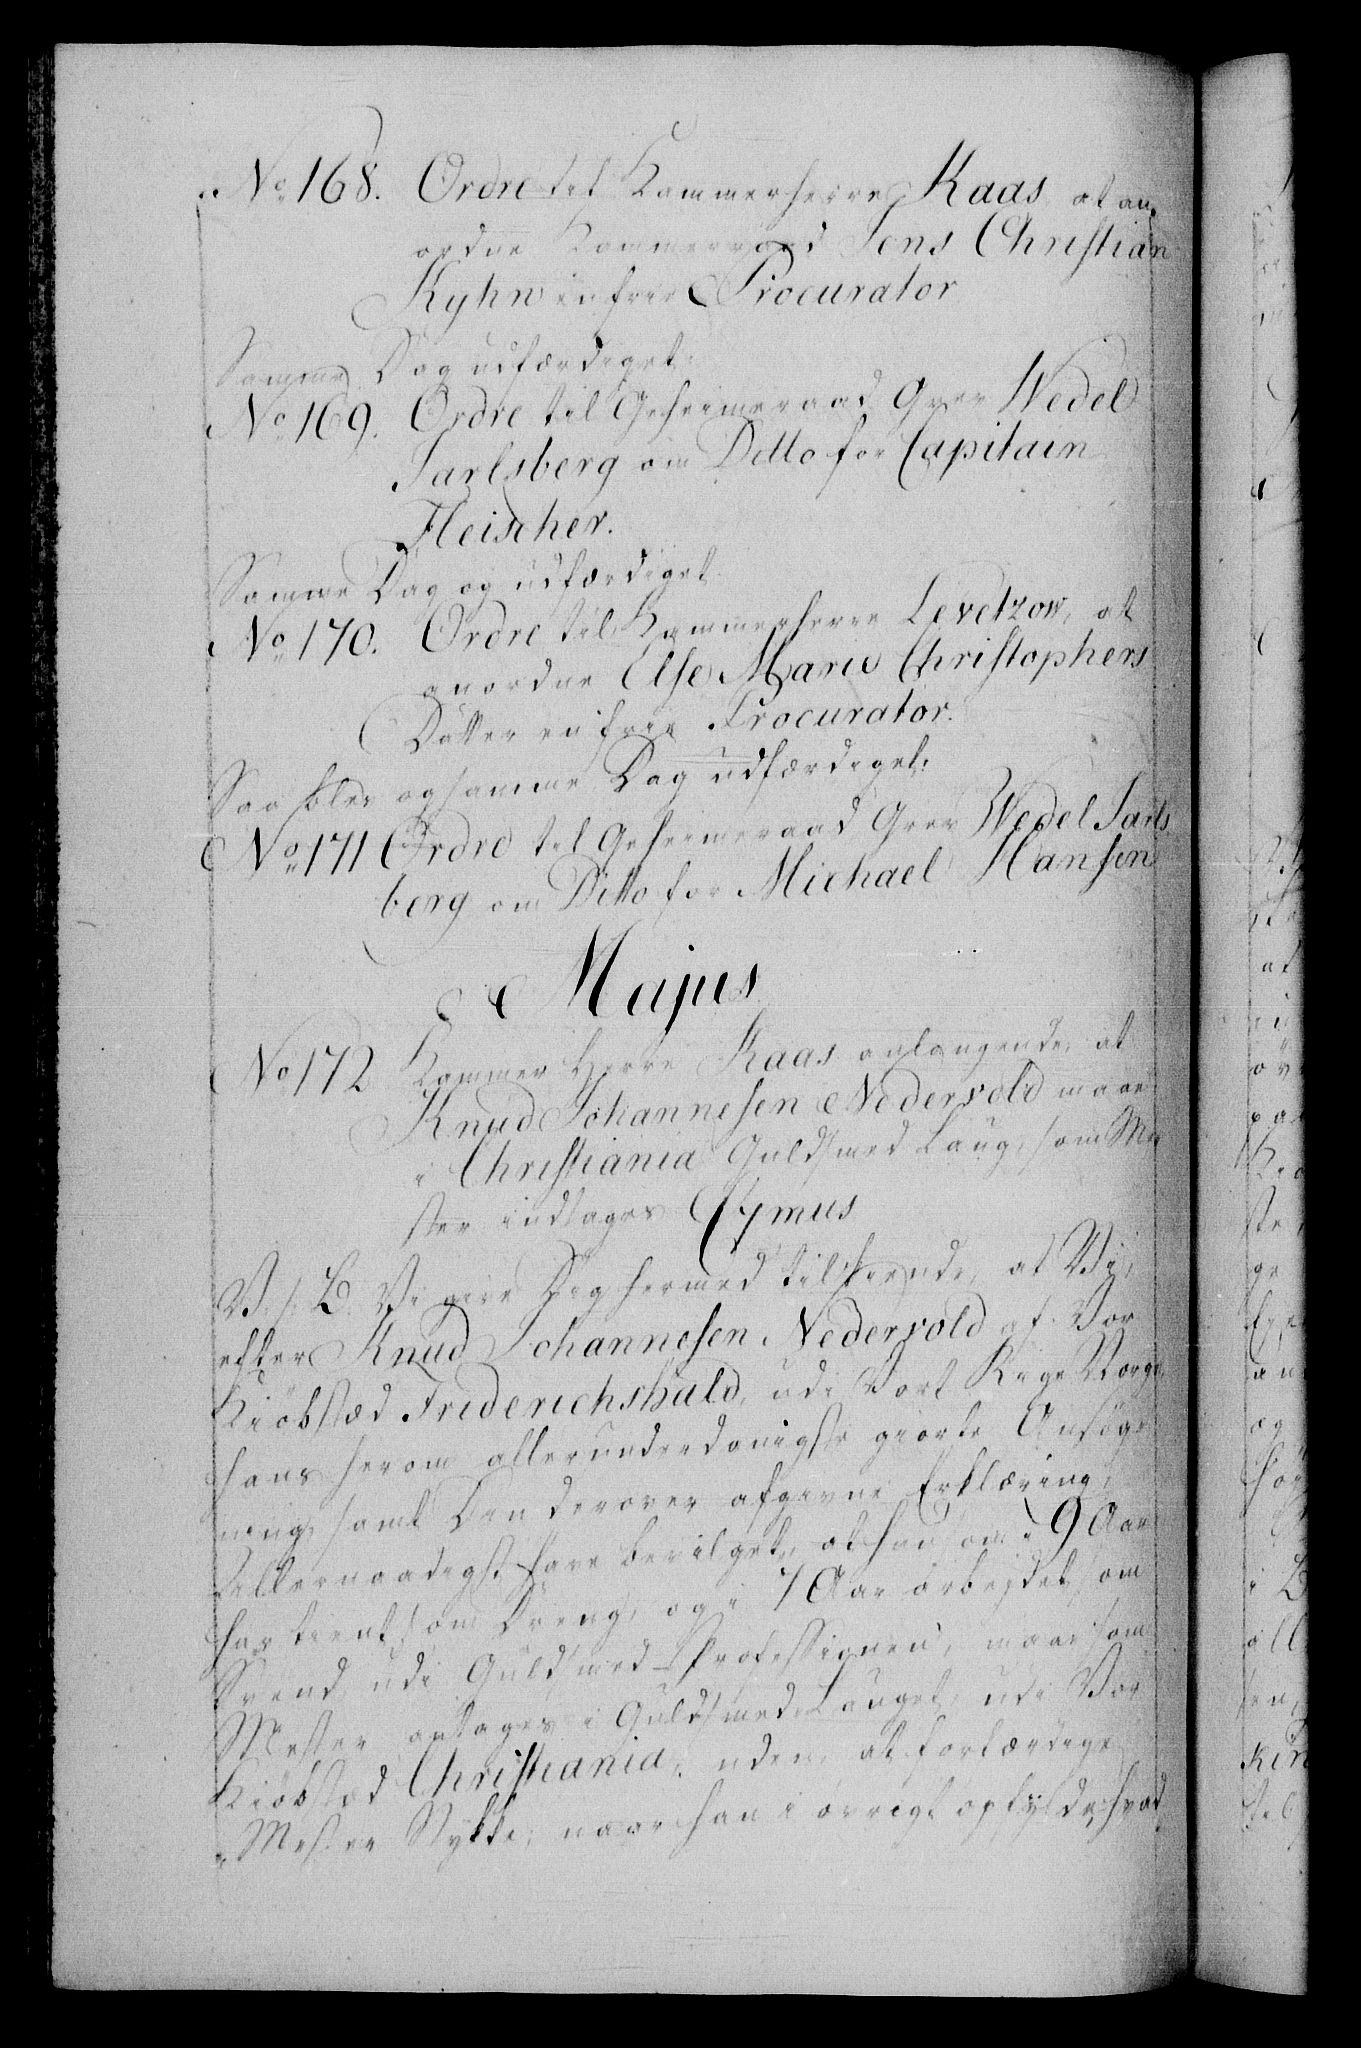 No 168. Ordre til Kammerherre Kaas at an-
ordne Kammerraad Jens Christian
Kyhn en frie Procurator
Samme Dag udfærdiget.
No 169. Ordre til Geheimeraad Grev Wedel
Jarlsberg om Ditto for Capitain
Fleischer.
Samme Dag og udfærdiget
No 170. Ordre til Kammerherre Levetzow, at
anordne Else Marie Christophers
Datter en frie Procurator.
Saa og samme Dag udfærdiget.
No 171 Ordre til Geheimeraad Grev Wedel Jarls
berg om Ditto for Michael Hansen
Majus
No 172 Kammer Herre Kaas anlangende, at
Knud Johannesen Nedervold maae
i Christiania Guldsmed Laug, som Me
ster indtages
V. S. B. Vi give Dig hermed tilkiende, at Vi,
efter Knud Johannesen Nedervold af Vor
Kiöbstæd Friderichshald, udi Vort Rige Norge,
hans herom allerunderdanigste giorte Ansøg-
ning, samt Den derover afgivne Erklæring,
Allernaadigst have bevilget, at han som i 9 Aar
har tient som Dreng, og i 7 Aar arbejdet som
Svend udi Guldsmed-Professionen, maae som
Mester antages i Guldsmed Lauget udi Vor
Kiöbstæd Christiania, uden at forfærdige
Mester Stykke, naar han i øvrigt opfylder, hvad